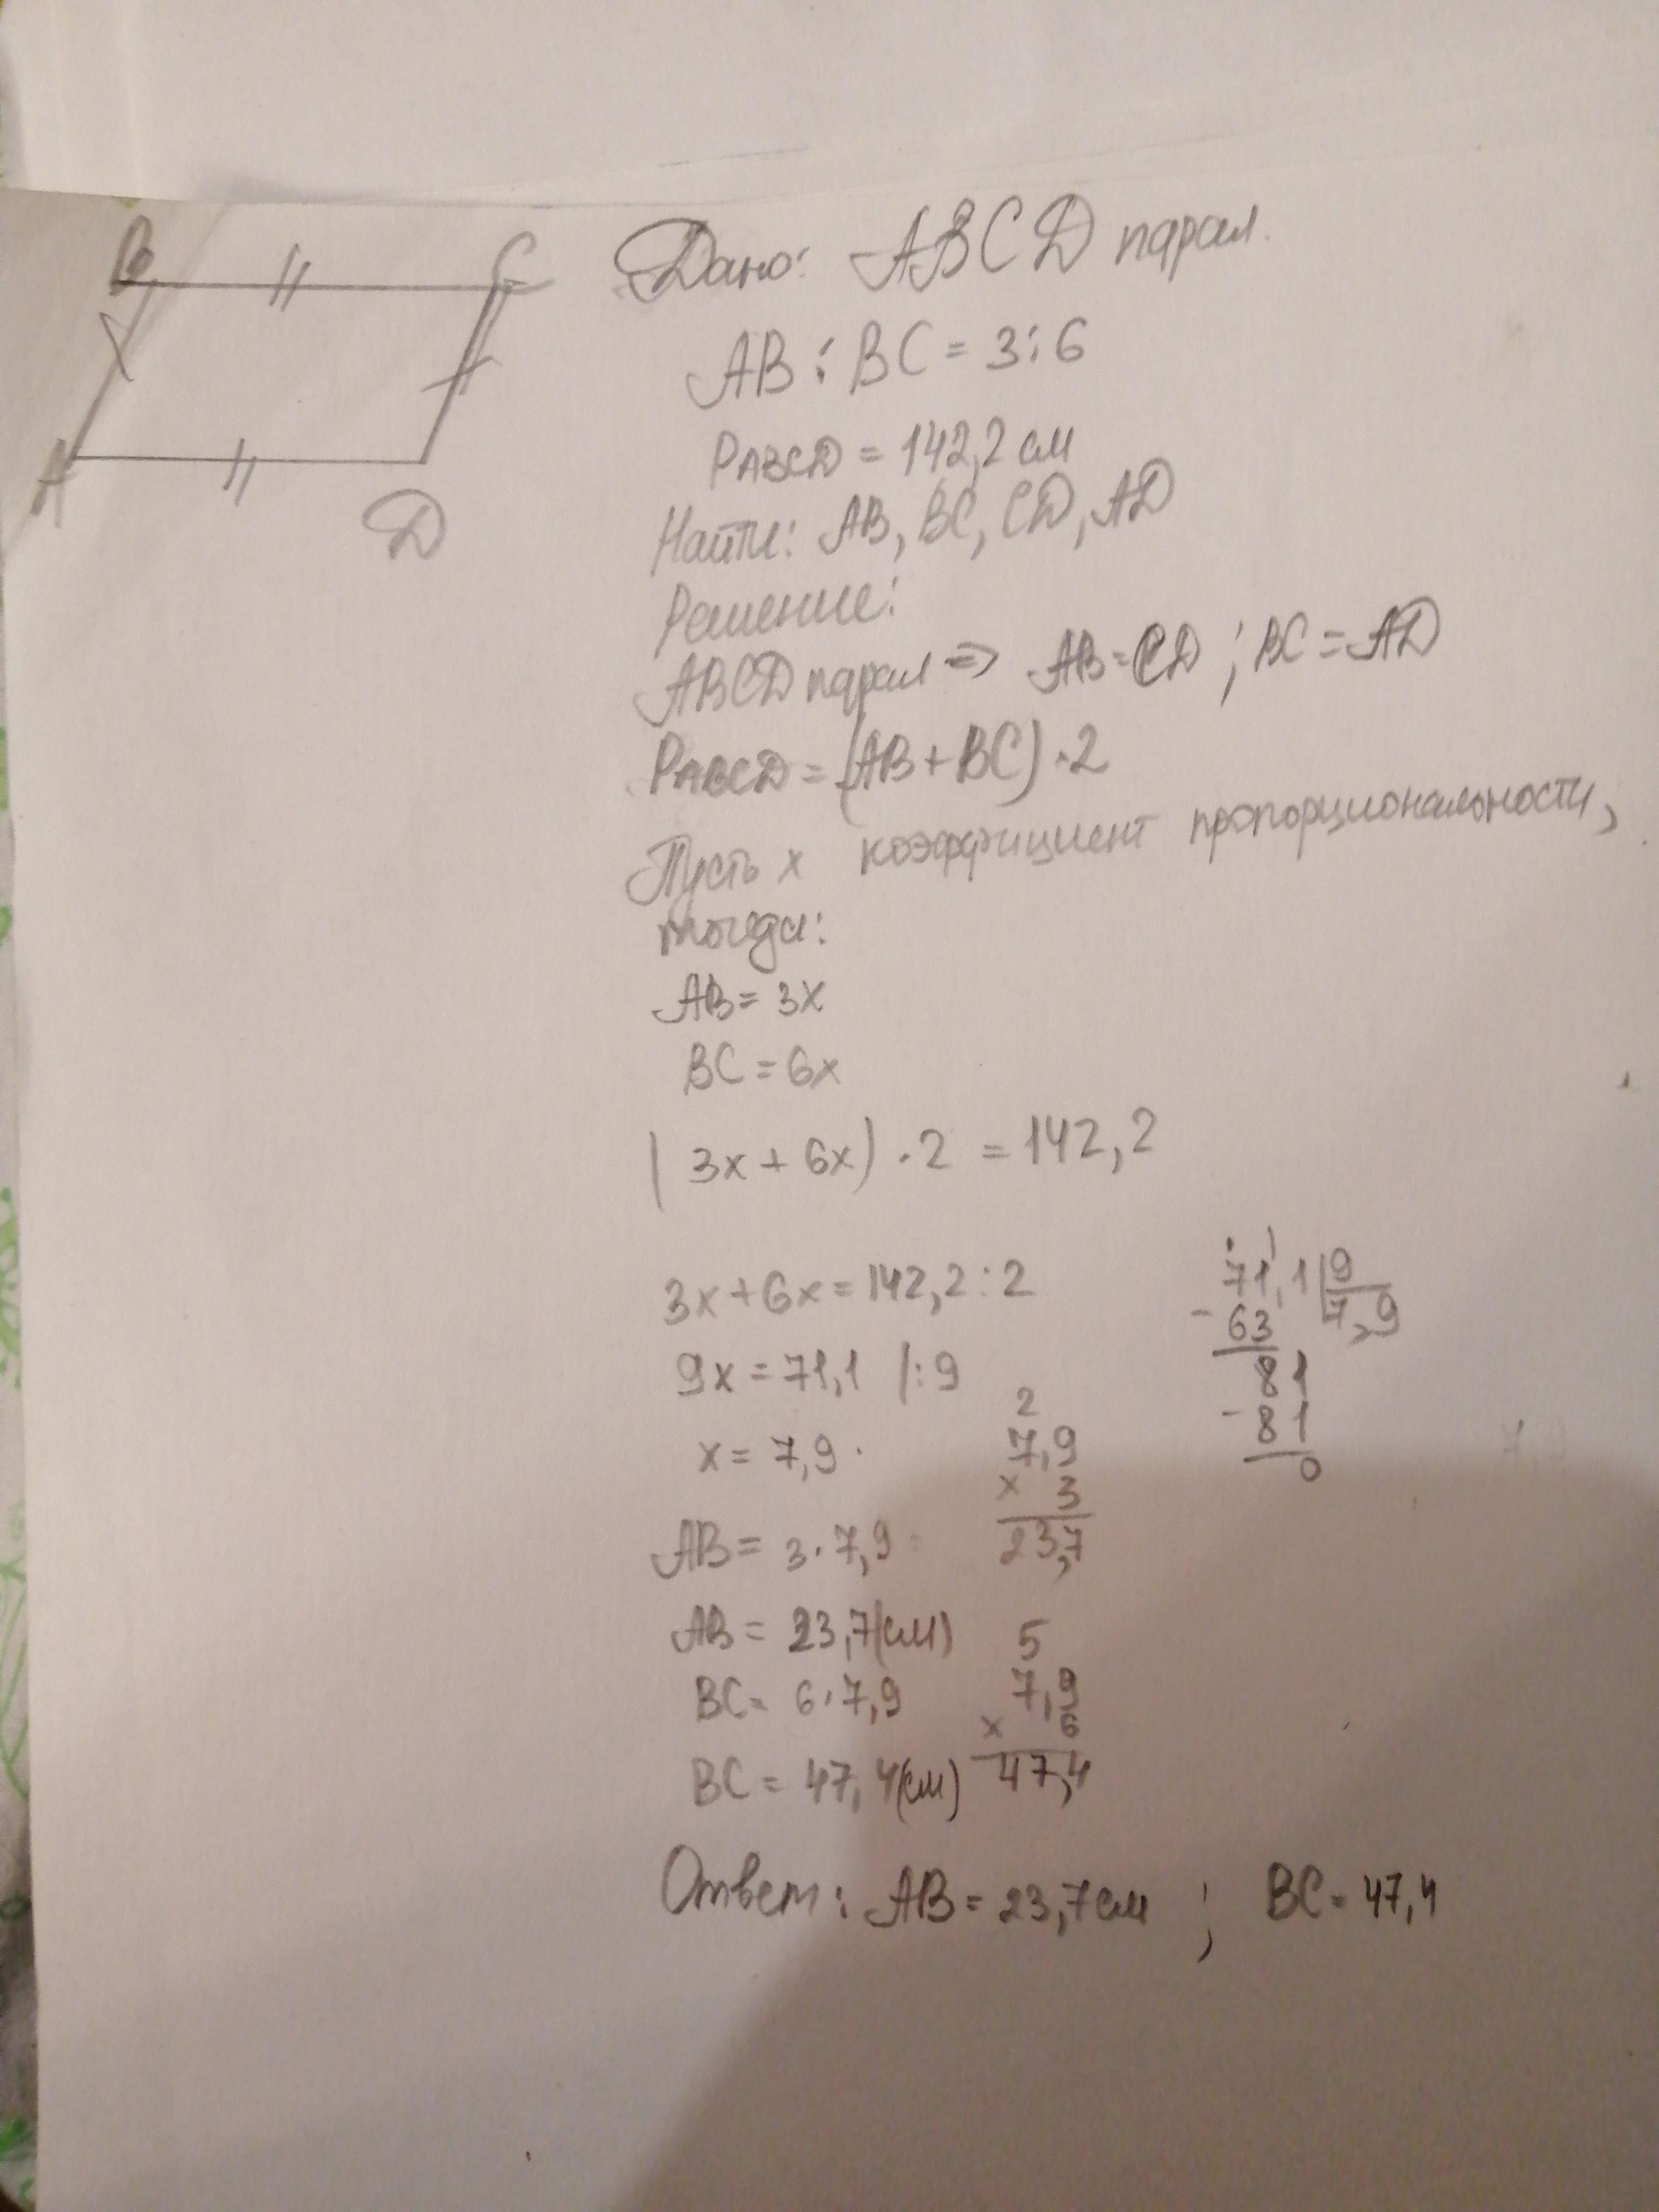 B C
A
D
Дано: ABCD парал.
AB : BC = 3:6
PABCD = 142,2 см
Найти: AB, BC, CD, AD
Решение:
ABCD парал => AB=CD ; BC=AD
PABCD = (AB+BC)·2
Пусть x коэффициент пропорциональности,
тогда:
AB = 3x
BC = 6x
(3x + 6x) · 2 = 142,2
3x+6x = 142,2 : 2
9x = 71,1 |:9
x = 7,9 .
71,1 | 9
- 63 7,9
81
- 81
0
2
7,9
x 3
23,7
AB = 3·7,9
AB = 23,7(см)
BC = 6·7,9
BC = 47,4(см)
5
7,9
x 6
47,4
Ответ: AB = 23,7см ; BC = 47,4